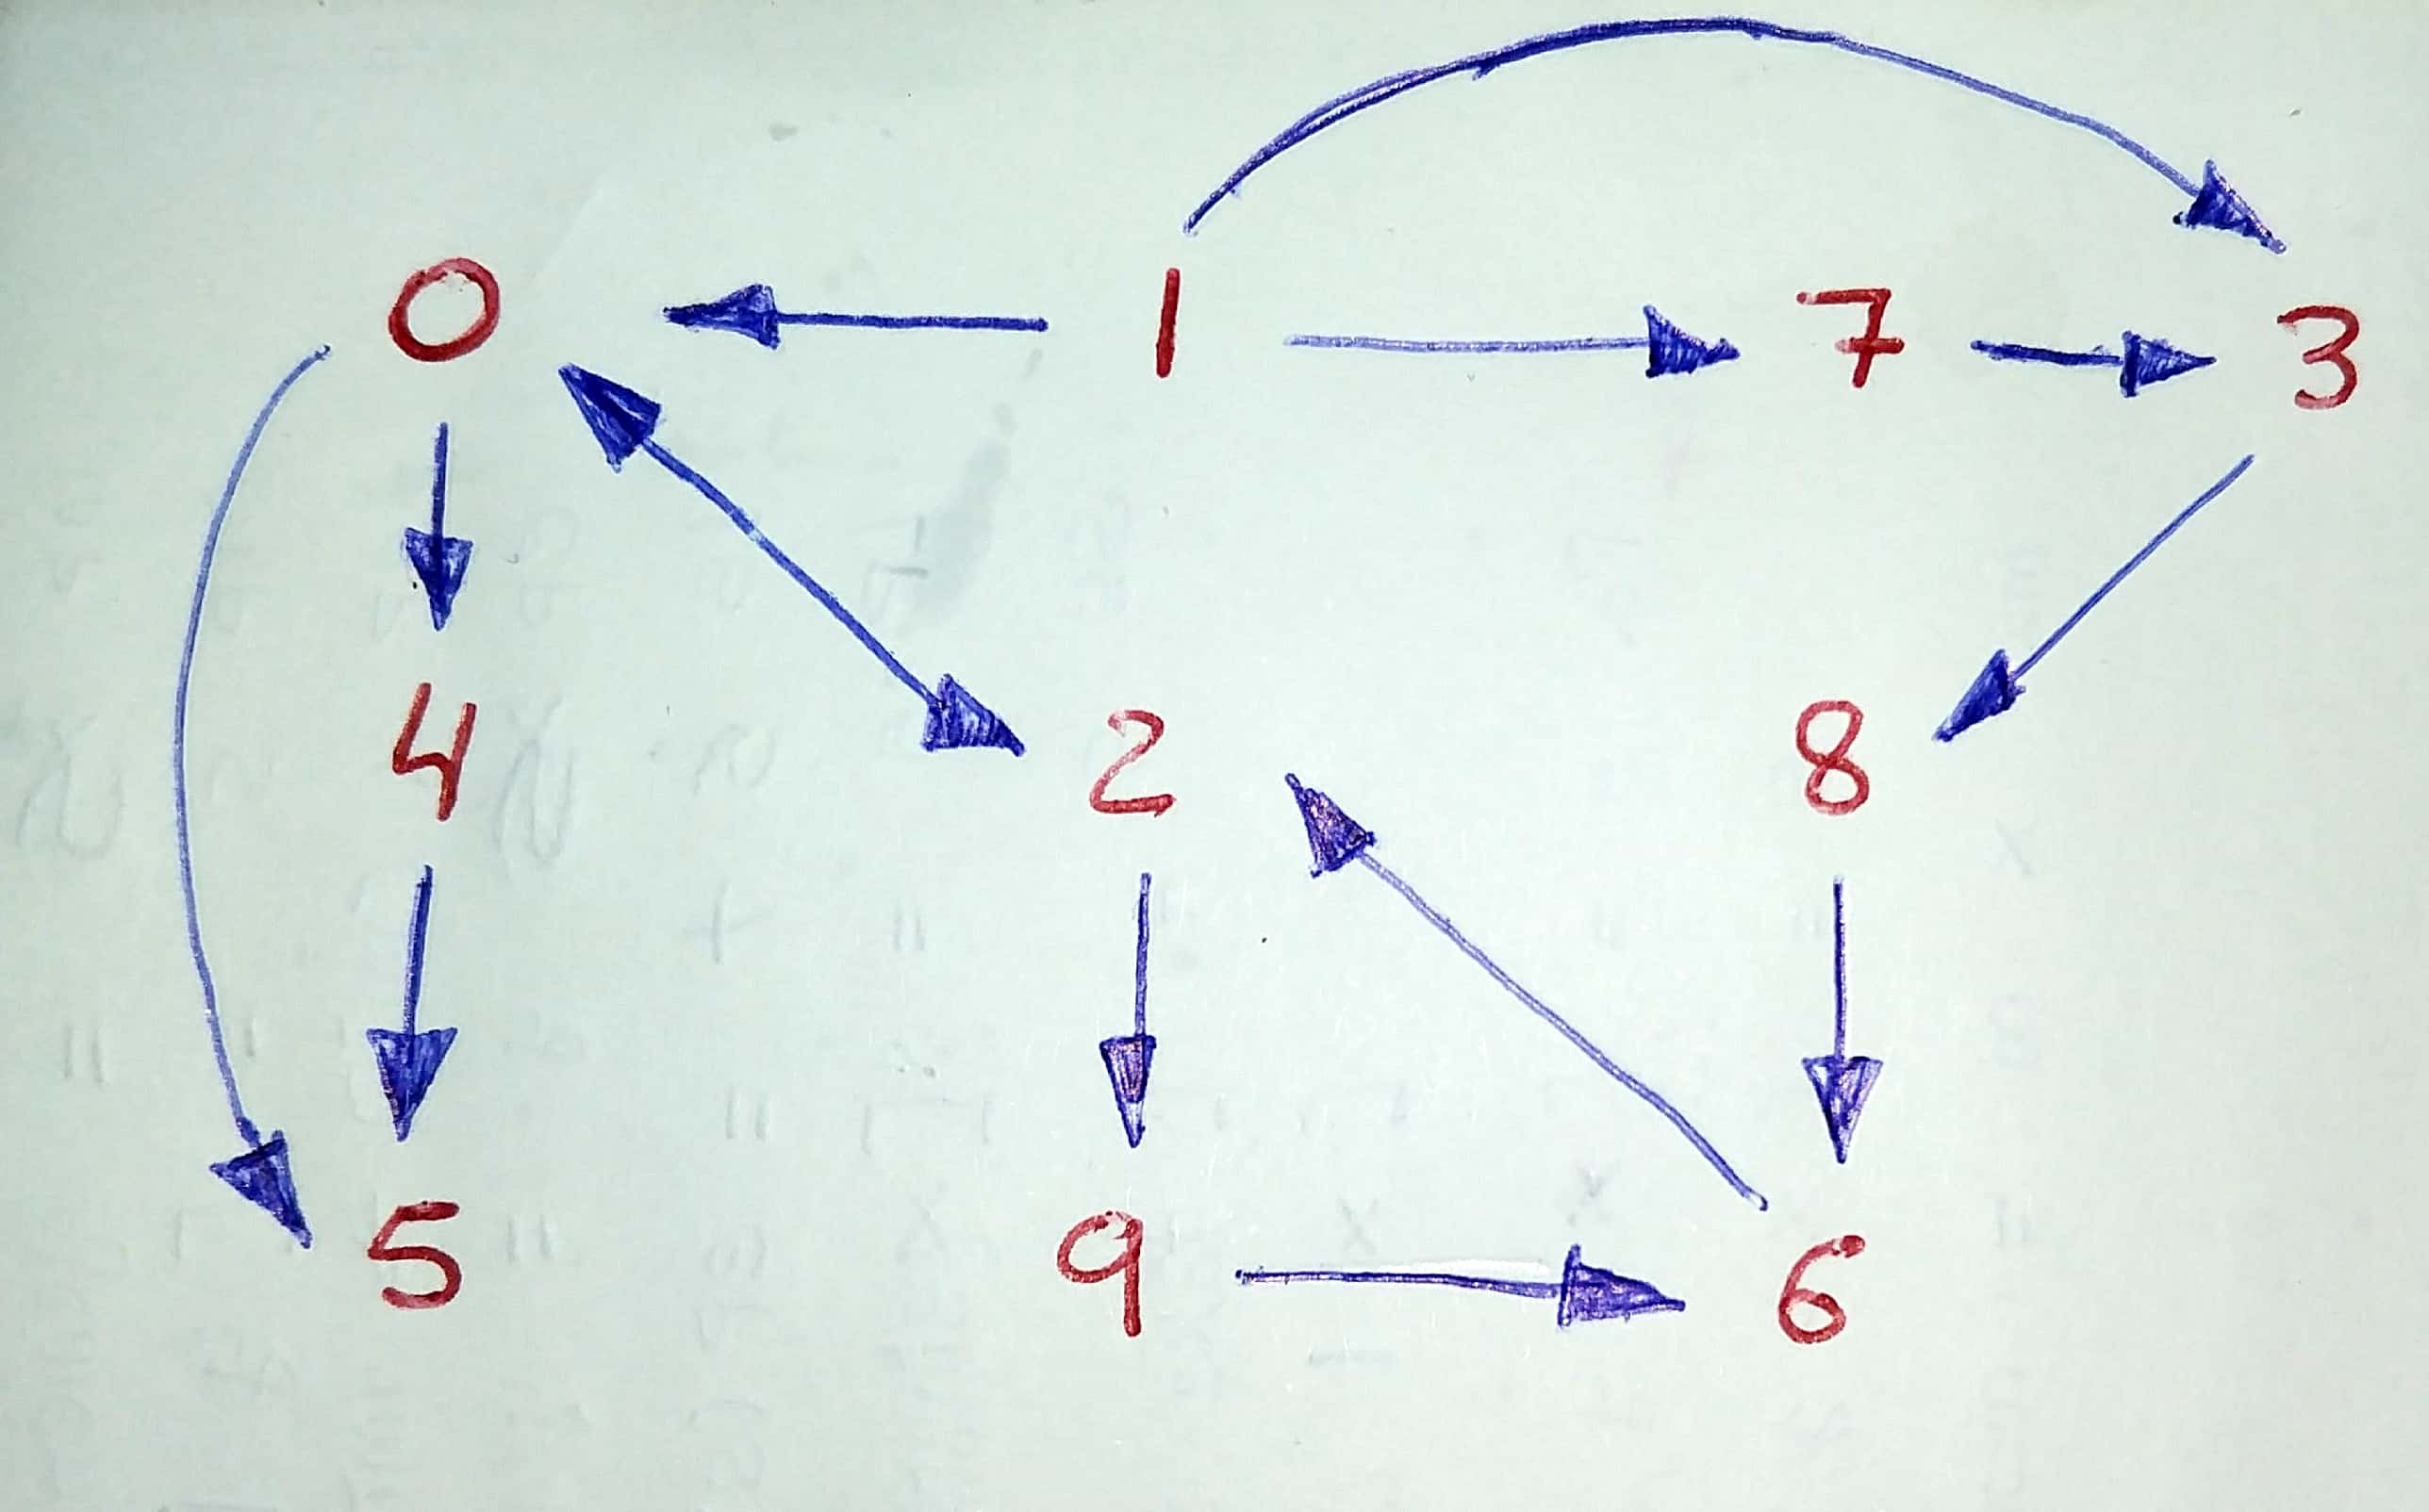 0 1 7 3
4 2 8
5 9 6